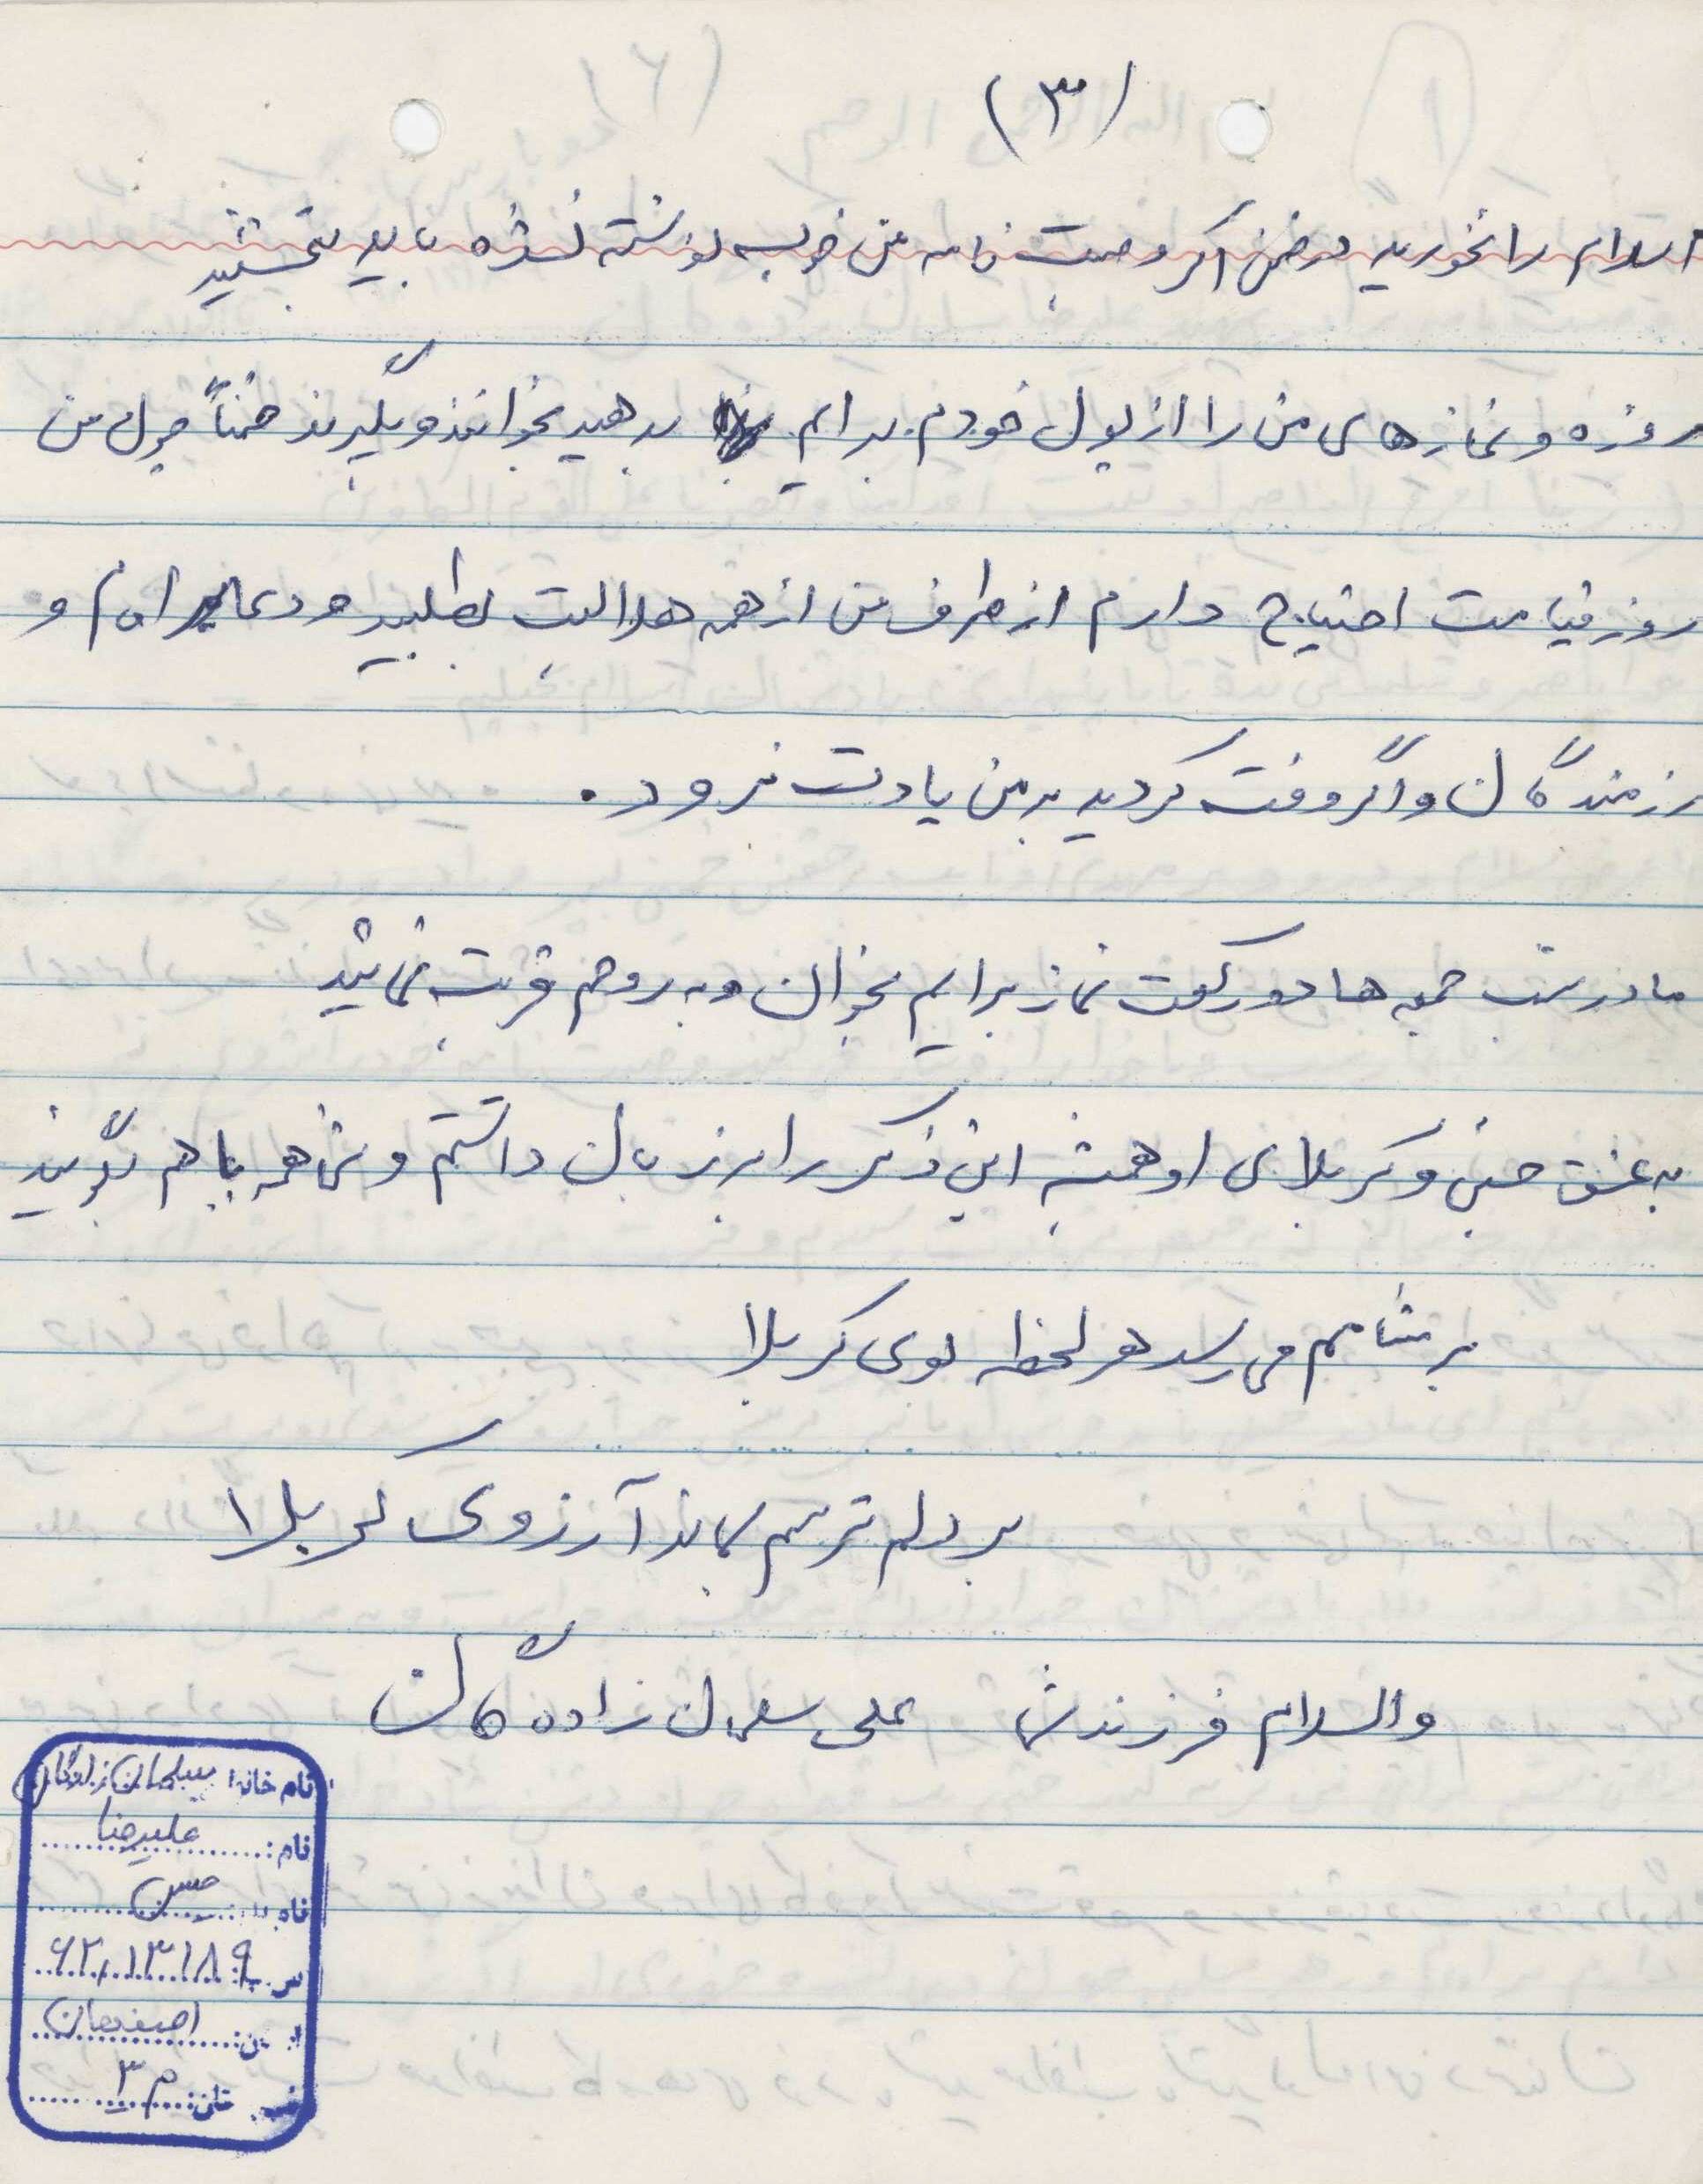 (۳)
اسلام را نخورید در ضمن اگر وصیت نامه من خوب نوشته نشده باید ببخشید
روزه و نمازهای من را از پول خودم برایم بدهید بخوانند و بگیرند ضمناً چون من
روز قیامت احتیاج دارم از طرف من از همه حلالیت بطلبید و دعا امام و
رزمندگان و اگر وقت کردید به من یادت نرود.
مادر شب جمعه ها دو رکعت نماز برایم بخوان و به روحم قربت نمائید
به عشق حسین و کربلای او همیشه این ذکر را بر زبان داشتم و شما همه با هم بگویید
بر مشامم می رسد هر لحظه بوی کربلا
بر دلم ترسم بماند آرزوی کربلا
والسلام فرزند شما علی سلمان زاده گان
نام خانوا سلمان زادگان
نام: علیرضا
نام حسن
س.پ: ۶۲,۱۳۱۸۹
اصفهان
م ۳